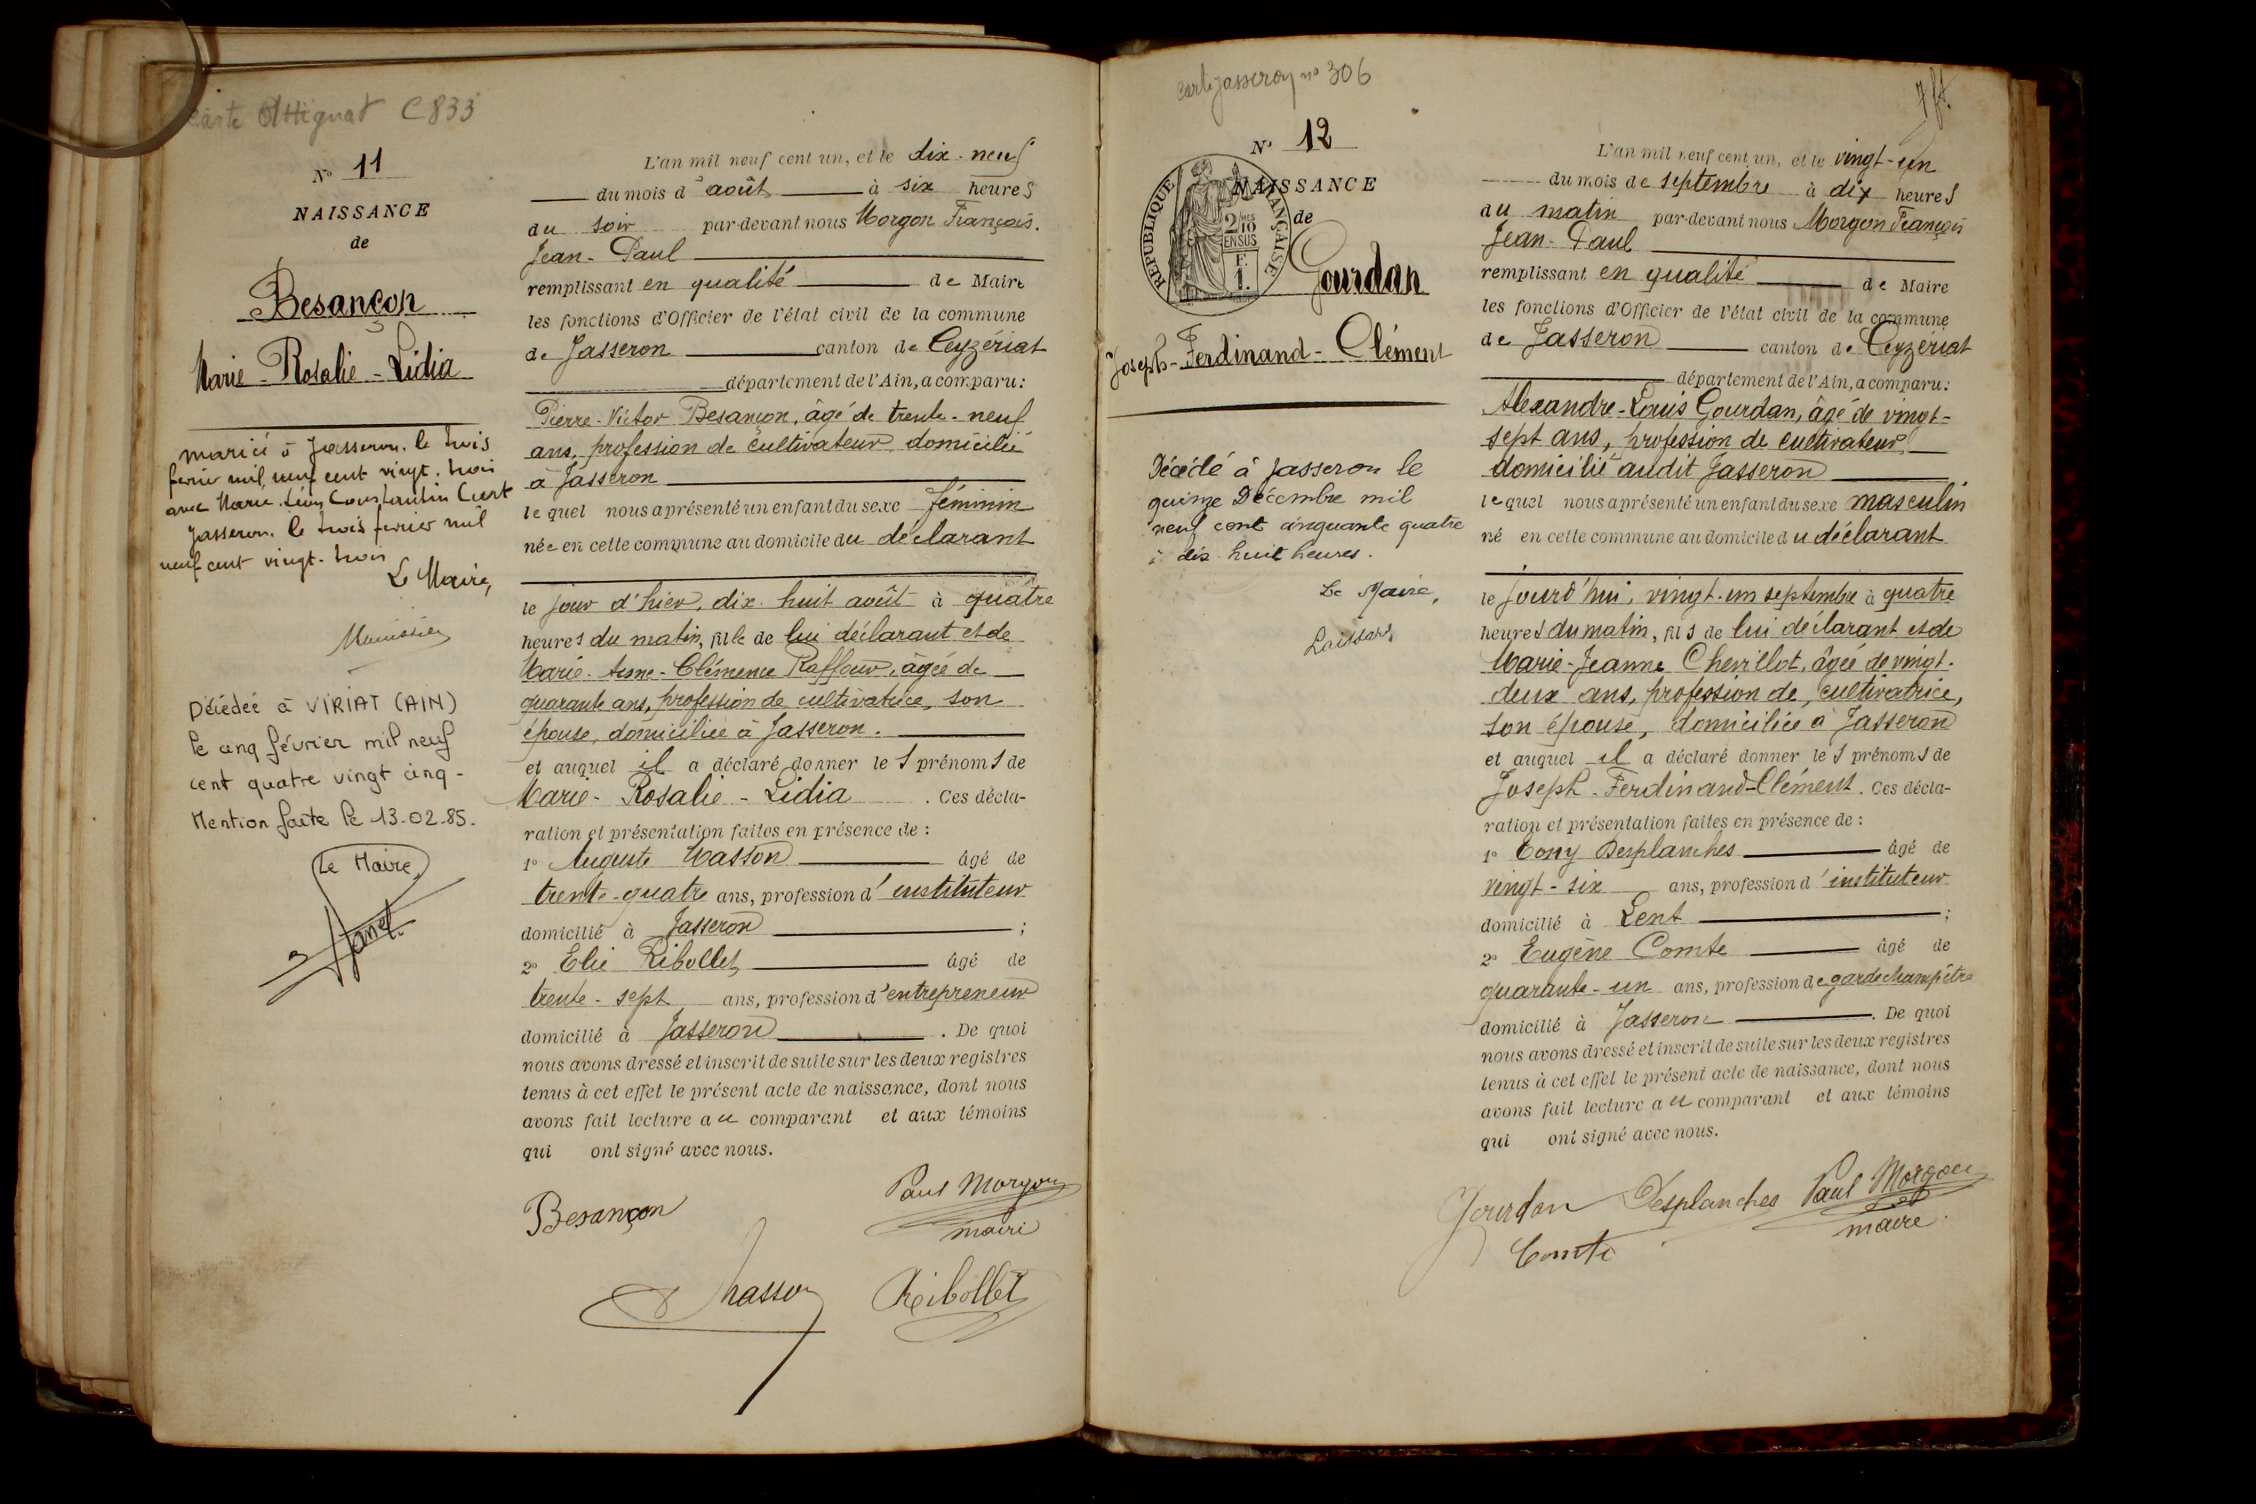 Carte Attignat C 833
No 11
NAISSANCE
de
Besançon
Marie-Rosalie-Lidia
mariée à Jasseron, le trois
février mil neuf cent vingt-trois
avec Marie Léon Constantin Curt
Jasseron, le trois février mil
neuf cent vingt-trois
Le Maire,
Décédée à VIRIAT (AIN)
le cinq février mil neuf
cent quatre vingt cinq -
Mention faite le 13-02-85.
Le Maire,
L'an mil neuf cent un, et le dix-neuf
du mois d'août à six heures
du soir par-devant nous Morgon François.
Jean-Paul
remplissant en qualité de Maire
les fonctions d'Officier de l'état civil de la commune
de Jasseron canton de Ceyzériat
département de l'Ain, a comparu:
Pierre-Victor Besançon, âgé de trente-neuf
ans, profession de cultivateur domicilié
à Jasseron
lequel nous a présenté un enfant du sexe féminin
née en cette commune au domicile du déclarant
le jour d'hier, dix-huit août à quatre
heures du matin, fille de lui déclarant et de
Marie-Anne-Clémence Raffour, âgée de
quarante ans, profession de cultivatrice, son
épouse, domiciliée à Jasseron.
et auquel il a déclaré donner les prénoms de
Marie-Rosalie-Lidia. Ces décla-
ration et présentation faites en présence de:
1° Auguste Masson âgé de
trente-quatre ans, profession d'instituteur
domicilié à Jasseron ;
2° Elie Ribollet âgé de
trente-sept ans, profession d'entrepreneur
domicilié à Jasseron. De quoi
nous avons dressé et inscrit de suite sur les deux registres
tenus à cet effet le présent acte de naissance, dont nous
avons fait lecture au comparant et aux témoins
qui ont signé avec nous.
Besançon Paul Morgon
maire
Masson Ribollet
Carte Jasseron no 306
No 12
NAISSANCE
de
REPUBLIQUE FRANÇAISE
2/10
EN SUS
F.
1.
Gourdan
Joseph-Ferdinand-Clément
Décédé à Jasseron le
quinze Décembre mil
neuf cent cinquante quatre
à dix-huit heures.
Le Maire,
L'an mil neuf cent un, et le vingt-un
du mois de septembre à dix heures
du matin par-devant nous Morgon François
Jean-Paul
remplissant en qualité de Maire
les fonctions d'Officier de l'état civil de la commune
de Jasseron canton de Ceyzériat
département de l'Ain, a comparu:
Alexandre-Louis Gourdan, âgé de vingt-
sept ans, profession de cultivateur
domicilié audit Jasseron
lequel nous a présenté un enfant du sexe masculin
né en cette commune au domicile du déclarant
le jourd'hui, vingt-un septembre à quatre
heures du matin, fils de lui déclarant et de
Marie-Jeanne Chevillot, âgée de vingt-
deux ans, profession de, cultivatrice,
son épouse, domiciliée à Jasseron
et auquel il a déclaré donner les prénoms de
Joseph-Ferdinand-Clément. Ces décla-
ration et présentation faites en présence de:
1° Tony Desplanches âgé de
vingt-six ans, profession d'instituteur
domicilié à Lent ;
2° Eugène Comte âgé de
quarante-un ans, profession de garde champêtre
domicilié à Jasseron. De quoi
nous avons dressé et inscrit de suite sur les deux registres
tenus à cet effet le présent acte de naissance, dont nous
avons fait lecture au comparant et aux témoins
qui ont signé avec nous.
Gourdan Desplanches Paul Morgon
maire
Comte